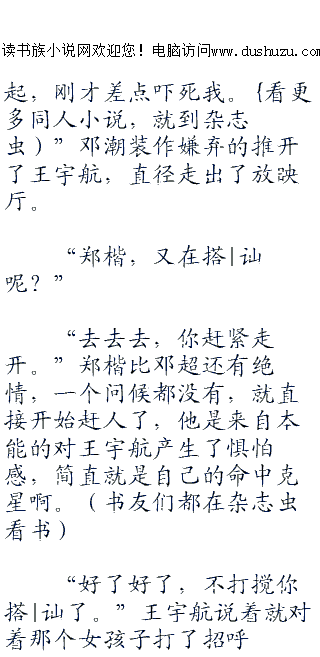 读书族小说网欢迎您！电脑访问www.dushuzu.com
起，刚才差点吓死我。{看更
多同人小说，就到杂志
虫)”邓潮装作嫌弃的推开
了王宇航，直径走出了放映
厅。
“郑楷，又在搭|讪
呢？”
“去去去，你赶紧走
开。”郑楷比邓超还有绝
情，一个问候都没有，就直
接开始赶人了，他是来自本
能的对王宇航产生了惧怕
感，简直就是自己的命中克
星啊。（书友们都在杂志虫
看书)
“好了好了，不打搅你
搭|讪了。”王宇航说着就对
着那个女孩子打了招呼